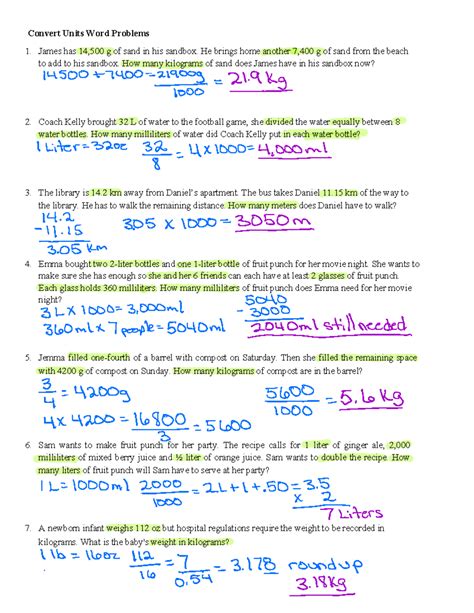 Convert Units Word Problems
1. James has 14,500 g of sand in his sandbox. He brings home another 7,400 g of sand from the beach
to add to his sandbox. How many kilograms of sand does James have in his sandbox now?
14500 + 7400 = 21900g = 21.9 Kg
1000
2. Coach Kelly brought 32 L of water to the football game, she divided the water equally between 8
water bottles. How many milliliters of water did Coach Kelly put in each water bottle?
1 Liter = 32oz 32 = 4 x 1000 = 4,000 ml
8
3. The library is 14.2 km away from Daniel's apartment. The bus takes Daniel 11.15 km of the way to
the library. He has to walk the remaining distance. How many meters does Daniel have to walk?
14.2
-11.15 3.05 x 1000 = 3050m
3.05 km
4. Emma bought two 2-liter bottles and one 1-liter bottle of fruit punch for her movie night. She wants to
make sure she has enough so she and her 6 friends can each have at least 2 glasses of fruit punch.
Each glass holds 360 milliliters. How many milliliters of fruit punch does Emma need for her movie
night?
3L x 1000 = 3,000ml 5040
- 3000
360ml x 7 people = 5040ml 2040ml still needed
5. Jemma filled one-fourth of a barrel with compost on Saturday. Then she filled the remaining space
with 4200 g of compost on Sunday. How many kilograms of compost are in the barrel?
3 = 4200g 5600 = 5.6 Kg
4 1000
4 x 4200 = 16800 = 5600
3
6. Sam wants to make fruit punch for her party. The recipe calls for 1 liter of ginger ale, 2,000
milliliters of mixed berry juice and ½ liter of orange juice. Sam wants to double the recipe. How
many liters of fruit punch will Sam have to serve at her party?
1L = 1000ml 2000 = 2L + 1 + .50 = 3.5
1000 x 2
7 Liters
7. A newborn infant weighs 112 oz but hospital regulations require the weight to be recorded in
kilograms. What is the baby's weight in kilograms?
1 lb = 16oz 112 = 7 = 3.178 round up
16 0.54 3.18Kg